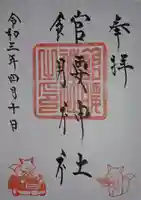 奉拝
館腰神社
令和三年四月十日